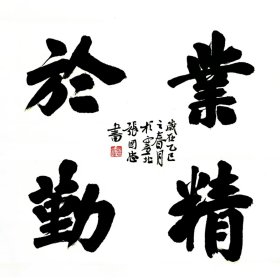 業精
於勤
歲在乙巳
之春月
於塞北
張国忠
書